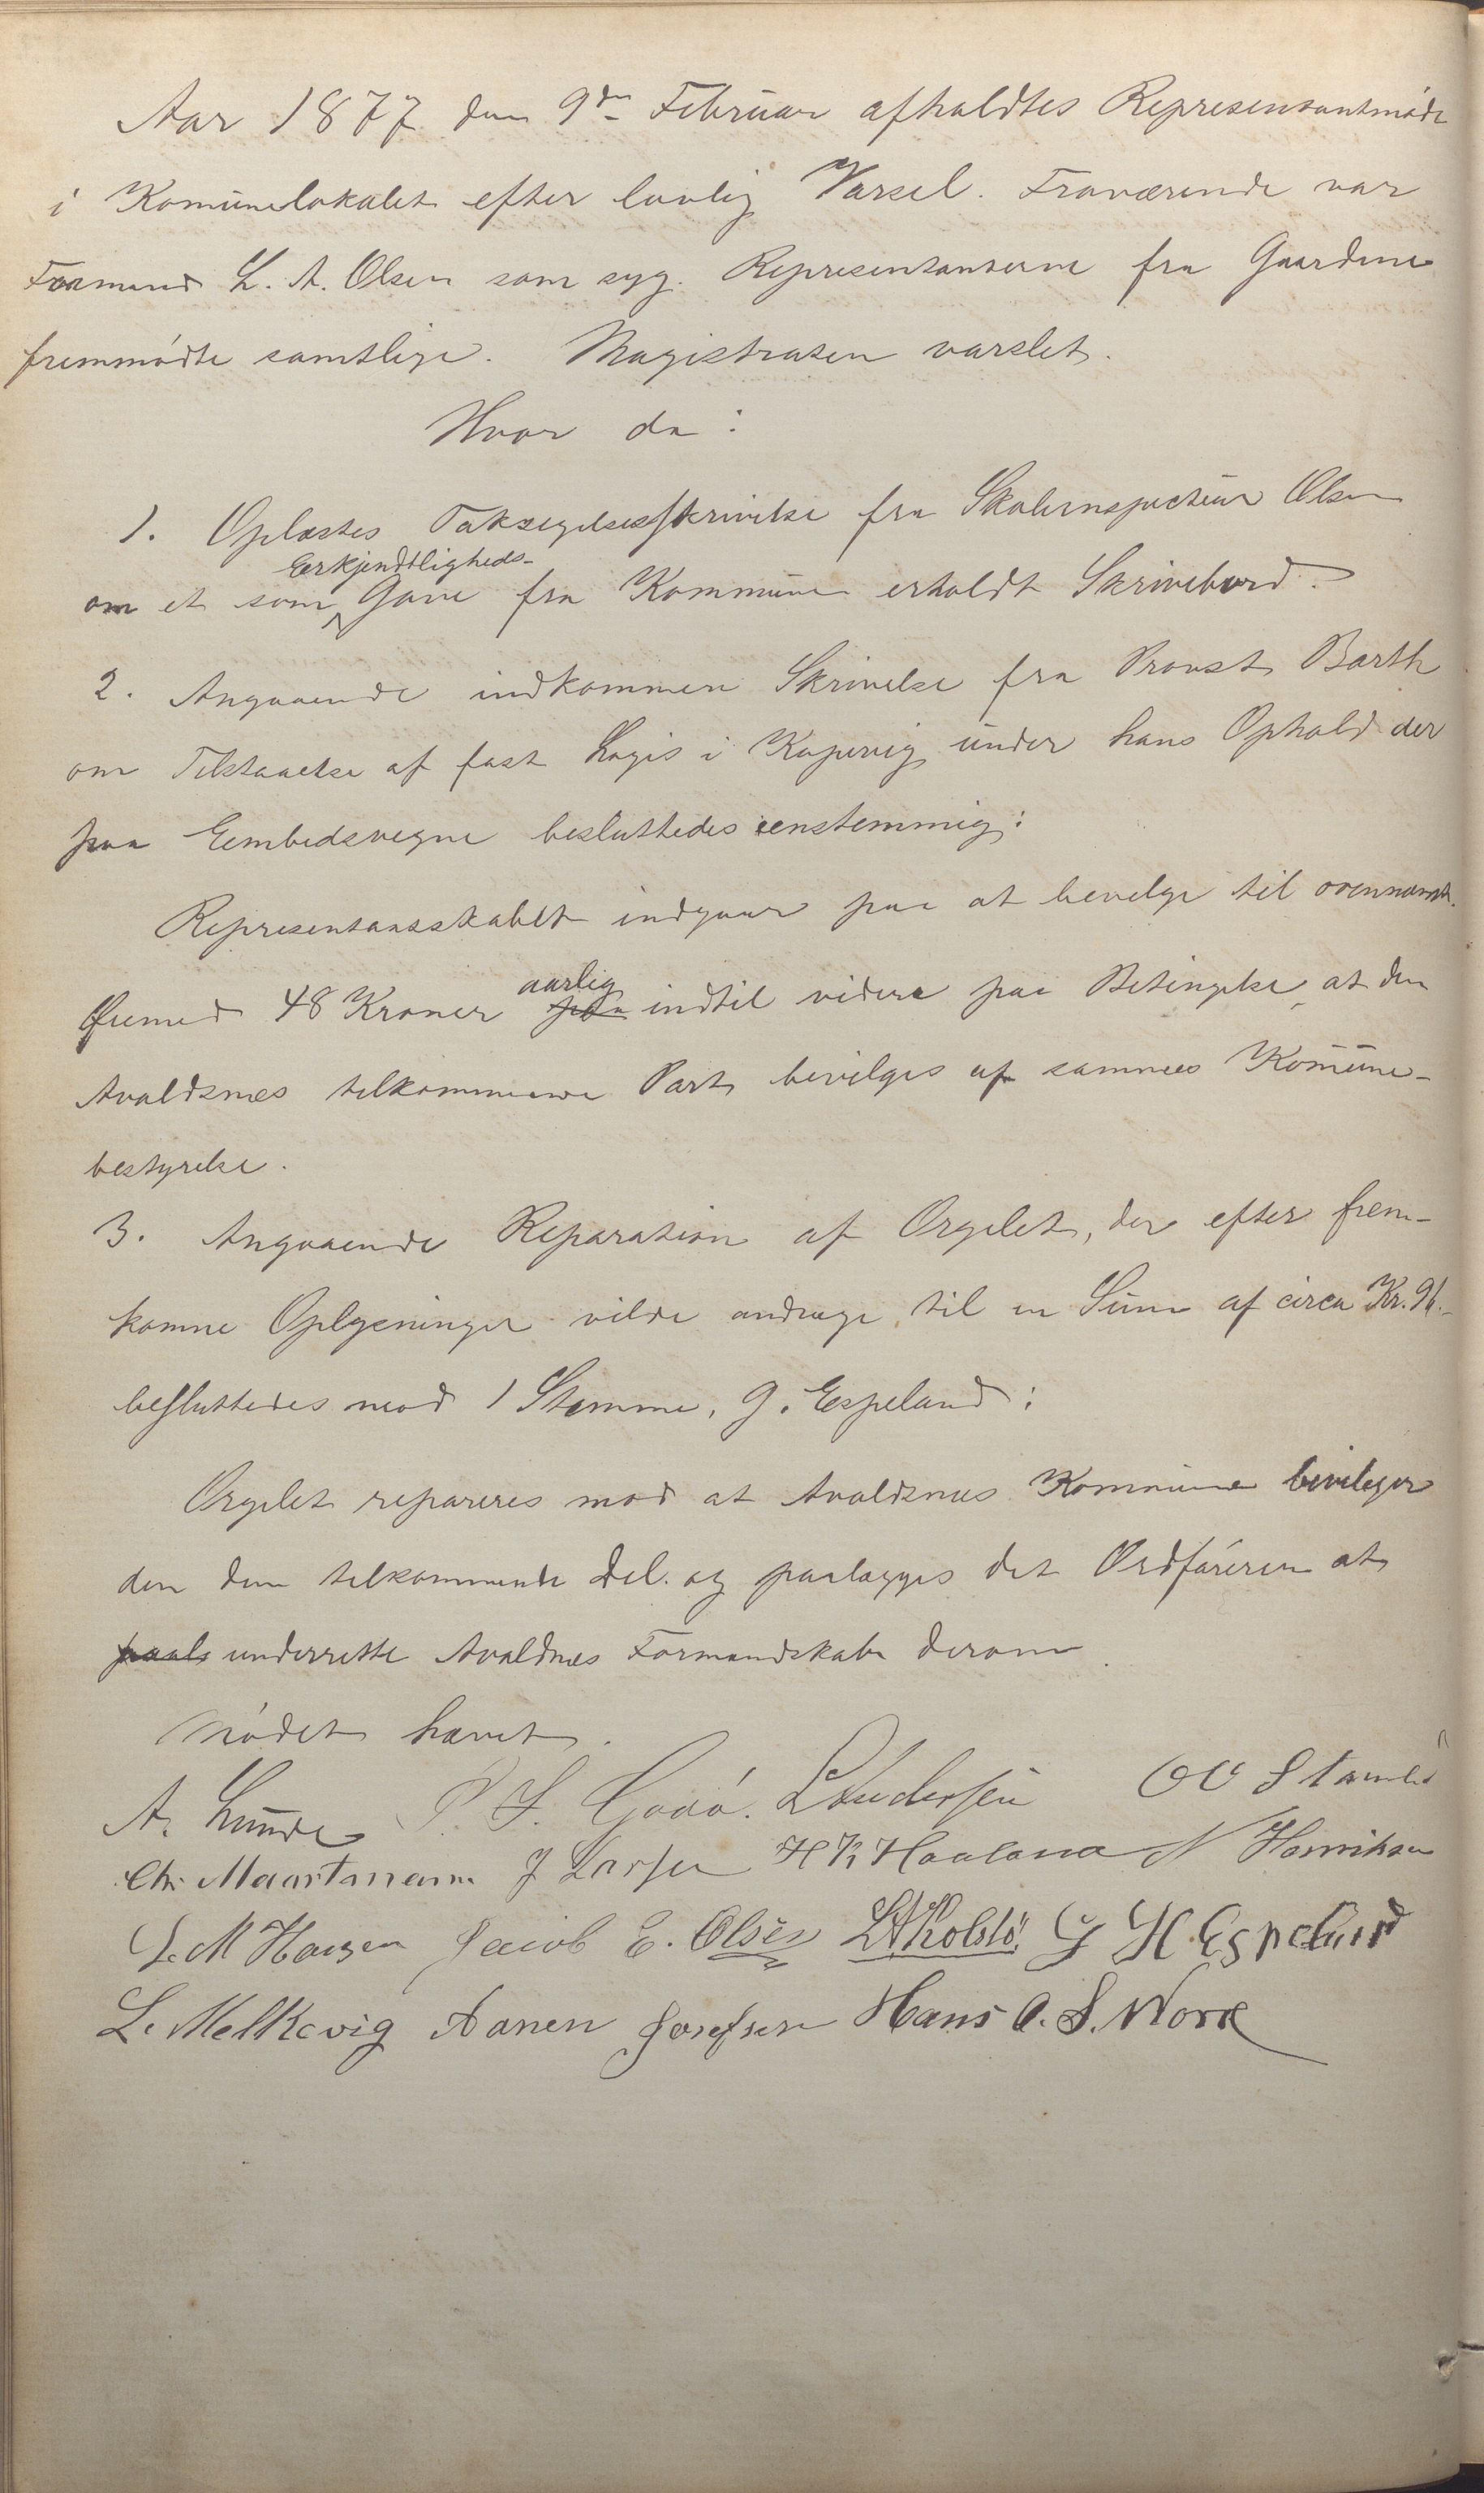 Aar 1877 den 9de Februar afholdtes Representantmøde
i Komünelokalet efter lovlig Varsel. Fraværende var
Formand L. A. Olsen som syg. Representanterne fra Gaardene
fremmødte samtlige. Magistraten varslet.
Hvor da:
1. Oplæstes Taksigelsesskrivelse fra Skoleinspecteur Olsen
Erkjendtligheds-
om et som Gave fra Kommunen erholdt Skrivebord.
2. Angaaende indkommen Skrivelse fra Provst Barth
om Tilstaaelse af fast Logis i Kopervig under hans Ophold der
paa Eembedsvegne besluttedes eenstemmig:
Representantskabet indgaar paa at bevilge til ovennævnte
Øiemed 48 Kroner aarlig indtil videre paa Betingelse, at den
Avaldsnes tilkommende Part bevilges af sammes Komüne-
bestyrelse.
3. Angaaende Reparation af Orgelet, der efter frem-
komne Oplysninger vilde andrage til en Sum af circa Kr. 96.-
besluttedes mod 1 Stemme, G. Espeland:
Orgelet repareres mod at Avaldsnes Kommune bevilger
den dem tilkommende Del. og paalægges det Ordføreren at
underrette Avaldnes Formandskab derom.
Mødet hævet.
A. Lunde P. S. Godø. L Andersen O O Stamnes
Chr. Maartmann J Larsen H K Haaland N Henriksen
L. M Hansen Jacob E. Olsen LA Kolstø G H Espeland
L. Melkevig Aanen Josefsen Hans A. S. Worre